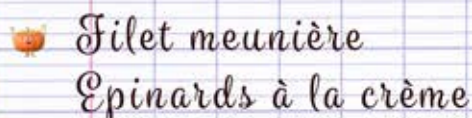 Filet meunière
Epinards à la crème